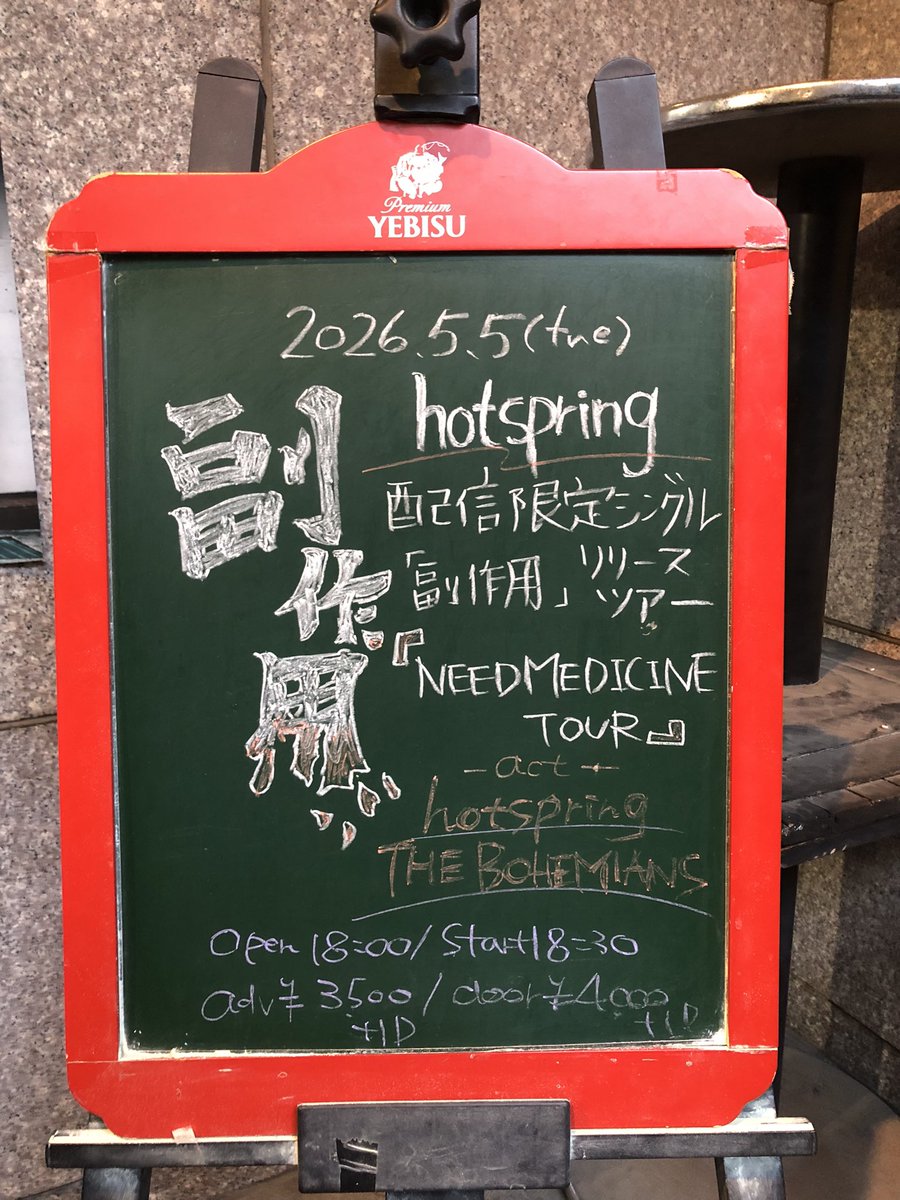 Premium
YEBISU
2026.5.5(tue)
副作用
hotspring
配信限定シングル
「副作用」リリースツアー
『NEEDMEDICINE
TOUR』
-act-
hotspring
THE BOHEMIANS
Open 18:00/Start 18:30
adv¥3500/door¥4000
+1D +1D